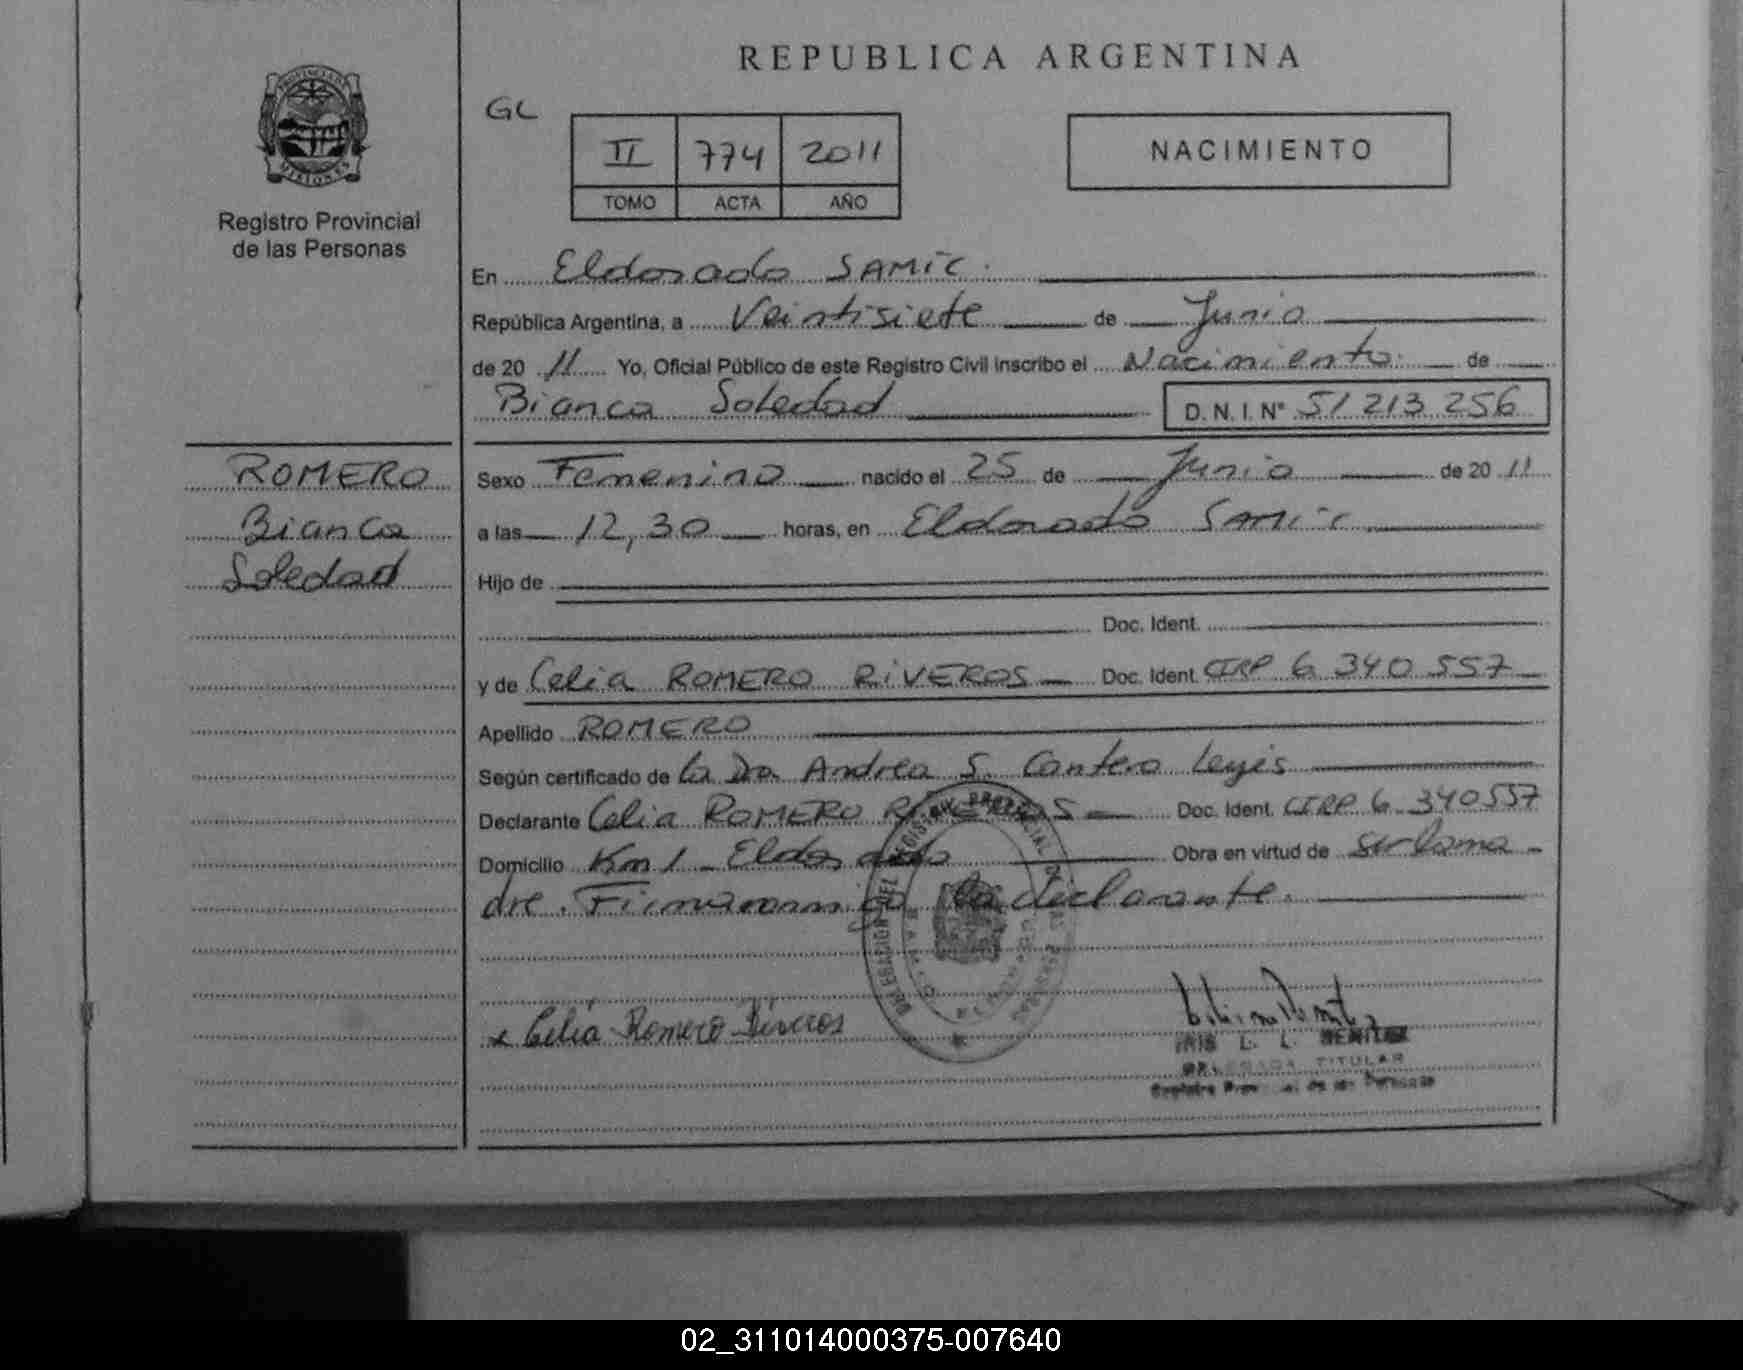 REPUBLICA ARGENTINA
PROVINCIA DE MISIONES
Registro Provincial
de las Personas
GL
II 774 2011
TOMO ACTA AÑO
NACIMIENTO
En Eldorado SAMIC.
República Argentina, a Veintisiete de Junio
de 20 11 Yo, Oficial Público de este Registro Civil inscribo el Nacimiento de
Bianca Soledad D.N.I. N° 51 213 256
ROMERO
Bianca
Soledad
Sexo Femenino nacido el 25 de Junio de 20 11
a las 12,30 horas, en Eldorado SAMIC
Hijo de
Doc. Ident.
y de Celia ROMERO RIVEROS Doc. Ident. CIRP 6 340 557
Apellido ROMERO
Según certificado de la Dra. Andrea S. Cantero Leyis
Declarante Celia ROMERO RIVEROS Doc. Ident. CIRP 6 340557
Domicilio Km 1 - Eldorado Obra en virtud de ser la ma-
dre. Firma la declarante.
DELEGACION DEL REGISTRO PROVINCIAL
x Celia Romero Riveros
IRIS L. L. BENITEZ
DELEGADA TITULAR
Registro Provincial de las Personas
02_311014000375-007640